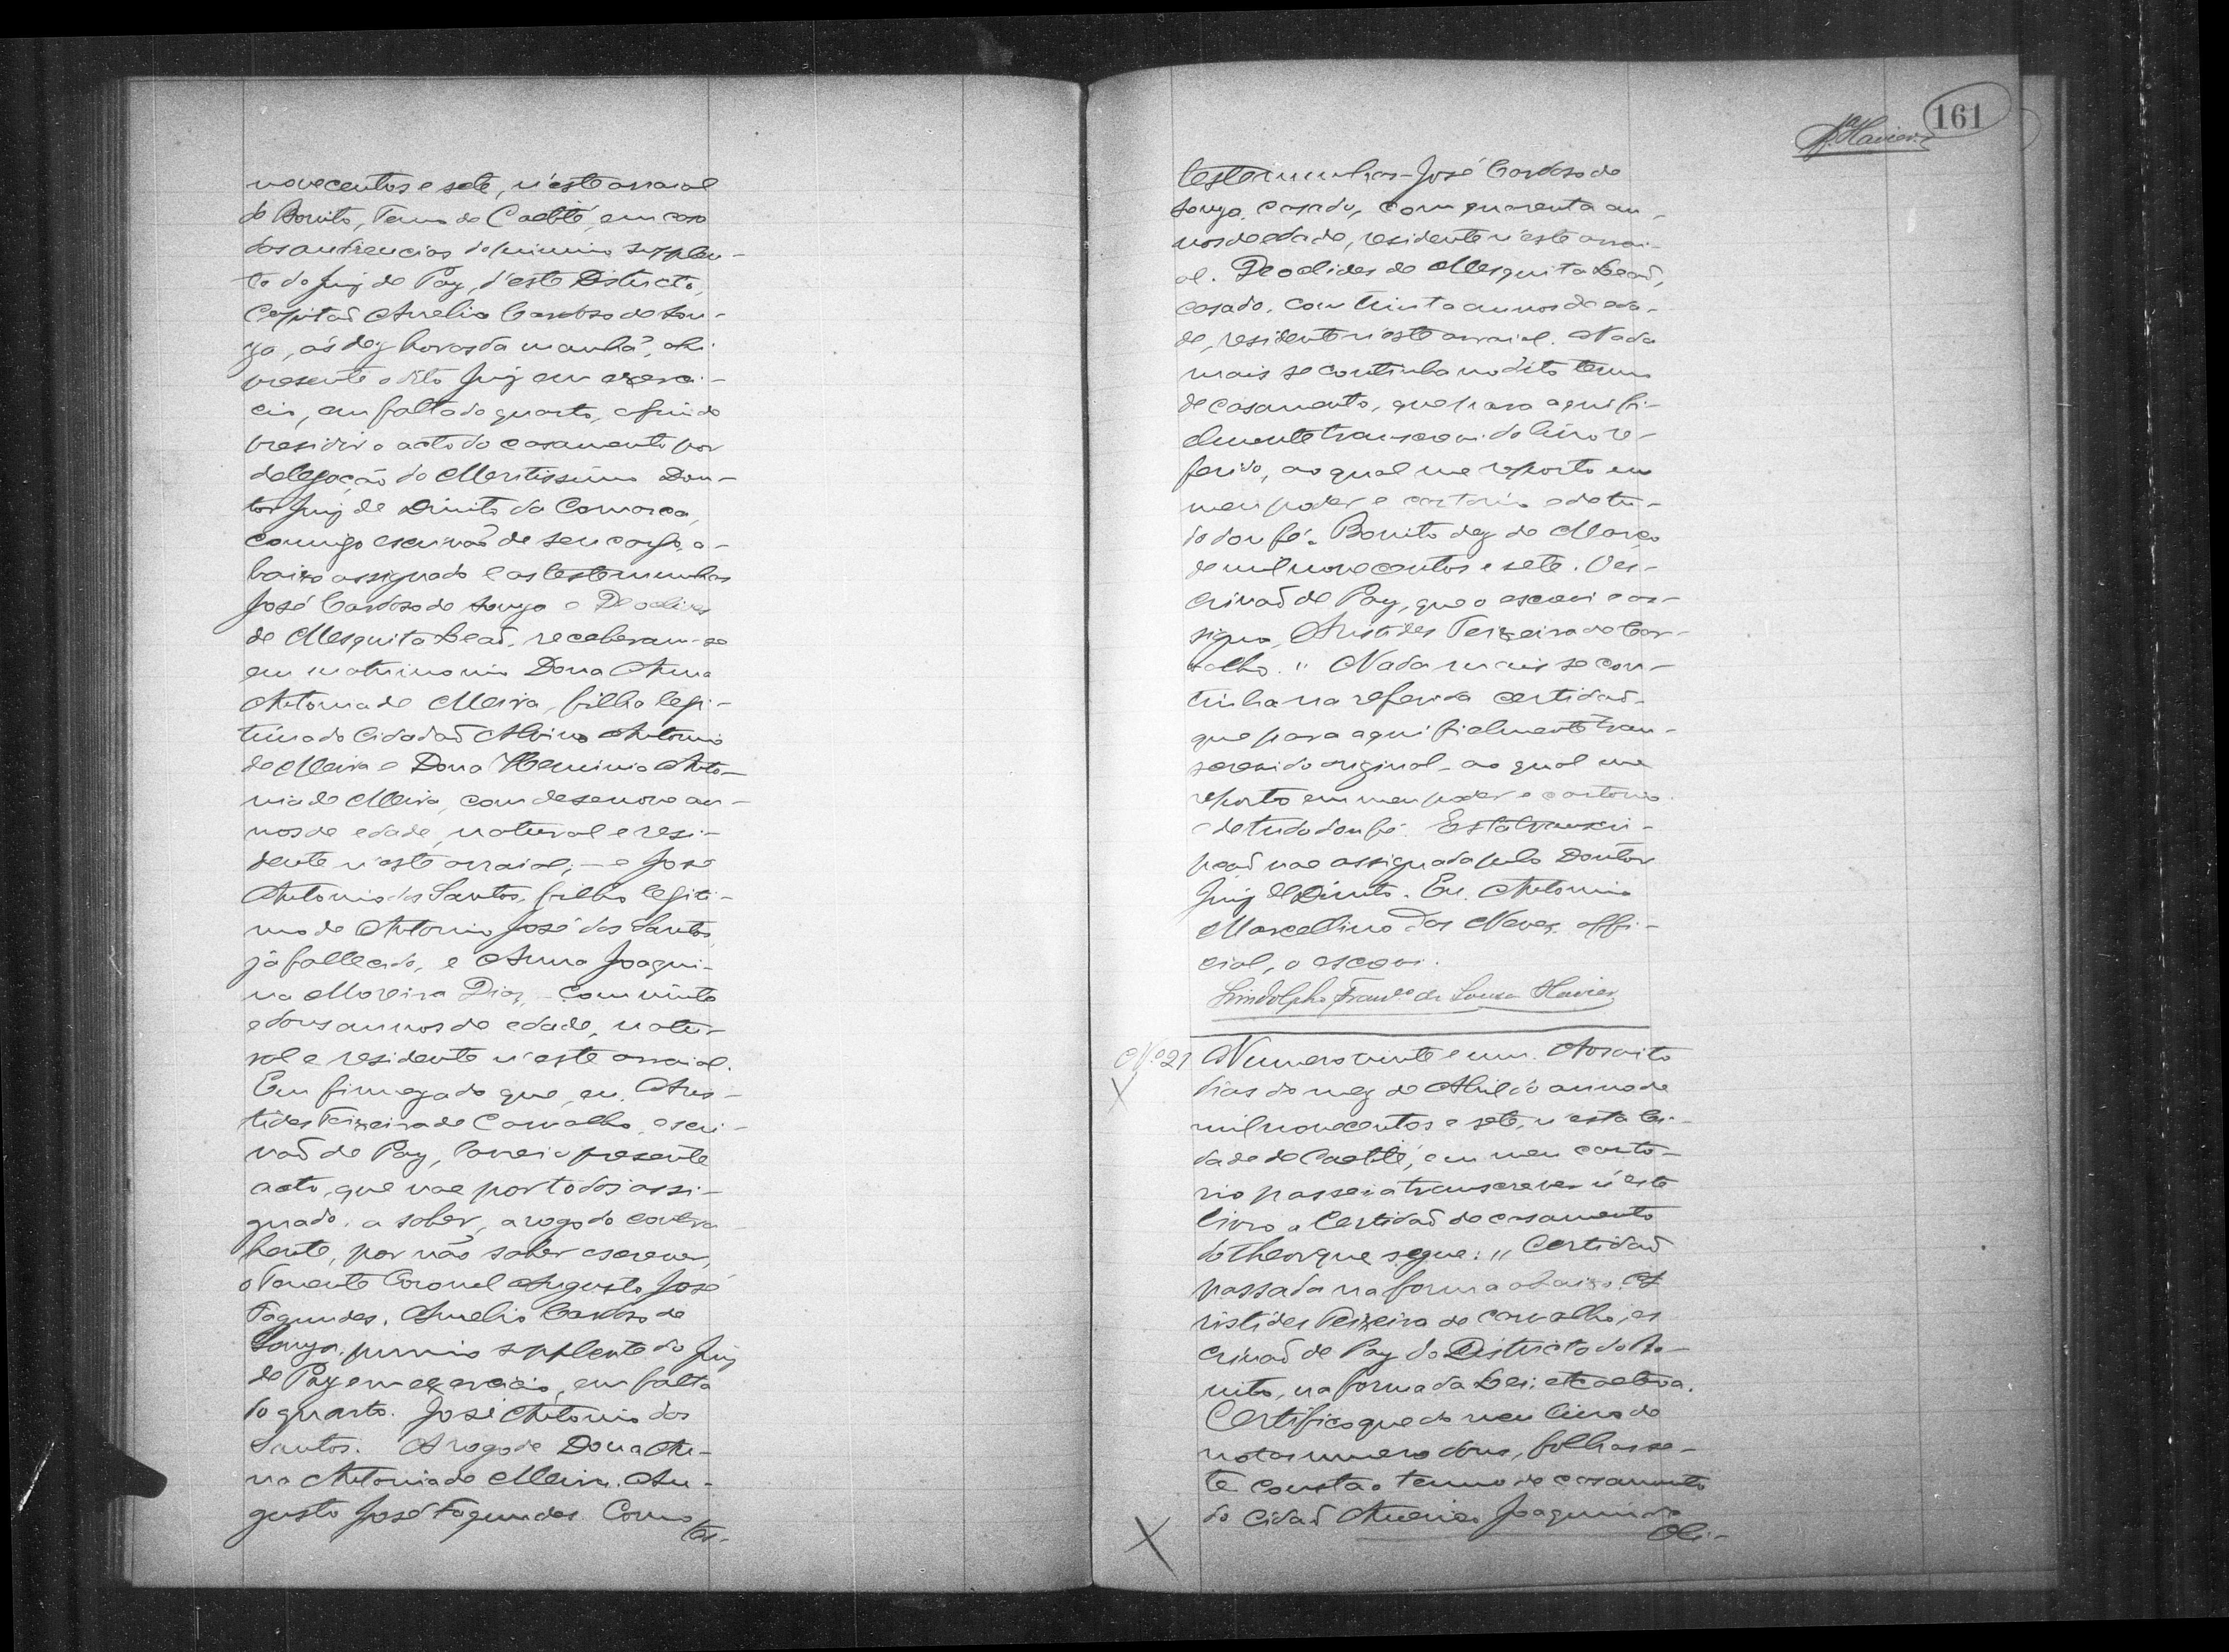 novecentos e sete, n'este arraial
do Bonito, Termo de Caetité, em casa
das audiencias do primeiro supplen-
te do Juiz de Paz, d'este Districto,
Capitaõ Aurelio Cardoso de Sou-
za, ás dez horas da manhã, ahi
presente o dito Juiz em exerci-
cio, em falta do quarto, afim de
presidir o acto do casamento por
delegação do Meritissimo Dou-
tor Juiz de Direito da Comarca,
comigo escrivaõ de seu cargo, a-
baixo assignado e as testemunhas
José Cardoso de Souza e Deoclides
de Mesquita Leaõ, receberam-se
em matrimonio Dona Anna
Antonia de Meira, filha legi-
tima do Cidadaõ Albino Antonio
de Meira e Dona Herminia Anto-
nia de Meira, com desenove an-
nos de edade, natural e resi-
dente n'este arraial; - e José
Antonio dos Santos, filho legiti-
mo de Antonio José dos Santos,
já fallecido, e Anna Joaqui-
na Moreira Dias, com vinte
e dous annos de edade, natu-
ral e residente n'este arraial.
Em firmeza do que, eu, Aris-
tides Teixeira de Carvalho, escri-
vaõ de Paz, lavrei o presente
acto, que vae por todos assi-
gnado, a saber, a rogo da contra-
hente, por não saber escrever,
o Tenente Coronel Augusto José
Fagundes. Aurelio Cardoso de
Souza, primeiro supplente do Juiz
de Paz em exercicio, em falta
do quarto. José Antonio dos
Santos. A rogo de Dona An-
na Antonia de Meira. Au-
gusto José Fagundes. Como
tes-
161
testemunhas - José Cardoso de
Souza, casado, com quarenta an-
nos de edade, residente n'este arrai-
al. Deoclides de Mesquita Leaõ,
casado, com trinta annos de eda-
de, residente n'este arraial. Nada
mais se continha no dito termo
de casamento, que para aqui fi-
elmente transcrevi do livro re-
ferido, ao qual me reporto em
meu poder e cartorio e de tu-
do dou fé. Bonito dez de Março
de mil novecentos e sete. O es-
crivaõ de Paz, que o escrevi e as-
signo, Aristides Teixeira de Car-
valho. " Nada mais se con-
tinha na referida certidaõ
que para aqui fielmente tran-
screvi do original - ao qual me
reporto em meu poder e cartorio
e de tudo dou fé. Esta transcri-
pçaõ vae assignada pelo Doutor
Juiz de Direito. Eu, Antonio
Marcellino das Neves, offi-
cial, o escrevi.
Lindolpho Franco de Sousa Xavier
Nº 21 Numero vinte e um. Aos oito
dias do mez de Abril do anno de
mil novecentos e sete, n'esta Ci-
dade de Caetité, em meu carto-
rio passei a transcrever n'este
livro a Certidaõ de casamento
do theor que segue: " Certidaõ
passada na forma abaixo. A-
ristides Teixeira de Carvalho, es
crivaõ de Paz do Districto do Bo-
nito, na forma da Lei, etcaetera.
Certifico que do meu livro de
notas numero dous, folhas se-
te consta o termo de casamento
do Cidaõ Joaquim de
Oli-